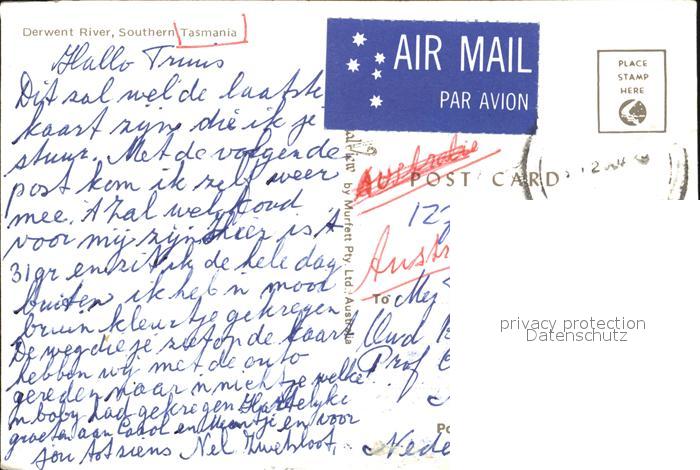 Derwent River, Southern Tasmania
Hallo Truus
Dit zal wel de laatste
kaart zijn die ik je
stuur. Met de volgende
post kom ik zelf weer
mee. 't Zal wel koud
voor mij zijn hier is 't
31 gr en zit ik de hele dag
buiten ik heb 'n mooi
bruin kleurtje gekregen
De weg die je ziet op de kaart
hebben wij met de auto
gereden naar 'n nichtje welke
'n baby had gekregen Hartelijke
groeten aan Carol en en voor
jou tot siens Nel Zwetsloot
AIR MAIL
PAR AVION
PLACE
STAMP
HERE
Australie
POST CARD
by Murfett Pty. Ltd. Australia
12
Aust
To Mej
Oud
Prof
Po
Nede
privacy protection
Datenschutz